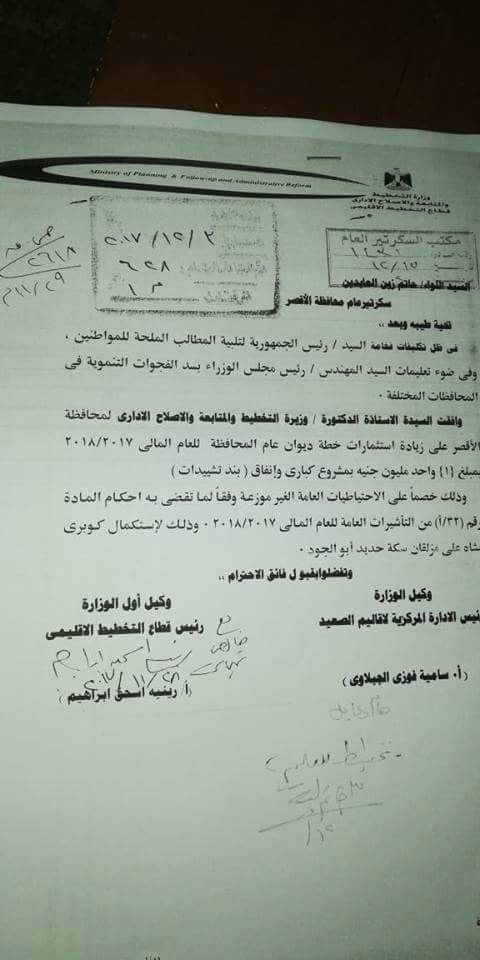 Ministry of Planning & Follow-up and Administrative Reform
وزارة التخطيط
والمتابعة والاصلاح الادارى
قطاع التخطيط الاقليمى
مكتب السكرتير العام
١٢/١٥
٢٠١٧/١٢/٣
٦٢٨
٢٦١٨
١١/٢٩
السيد اللواء/ حاتم زين العابدين
سكرتيرعام محافظة الأقصر
تحية طيبه وبعد ،،
فى ظل تكليفات فخامة السيد / رئيس الجمهورية لتلبية المطالب الملحة للمواطنين ،
وفى ضوء تعليمات السيد المهندس / رئيس مجلس الوزراء بسد الفجوات التنموية فى
المحافظات المختلفة ٠
وافقت السيدة الاستاذة الدكتورة / وزيرة التخطيط والمتابعة والاصلاح الادارى لمحافظة
الأقصر على زيادة استثمارات خطة ديوان عام المحافظة للعام المالى ٢٠١٨/٢٠١٧
بمبلغ {١} واحد مليون جنيه بمشروع كبارى وإنفاق ( بند تشييدات )
وذلك خصماً على الاحتياطيات العامة الغير موزعة وفقاً لما تقضى به احكام المادة
رقم (٣٢/أ) من التأشيرات العامة للعام المالى ٢٠١٨/٢٠١٧ ٠ وذلك لإستكمال كوبرى
مشاه على مزلقان سكة حديد أبو الجود ٠
وتفضلوابقبول فائق الاحترام ،،
وكيل الوزارة
رئيس الادارة المركزية لاقاليم الصعيد
(أ٠ سامية فوزى الجبلاوى )
وكيل أول الوزارة
رئيس قطاع التخطيط الاقليمى
٢٠١٧/١١/٢٨
(أ/ رينيه اسحق ابراهيم )